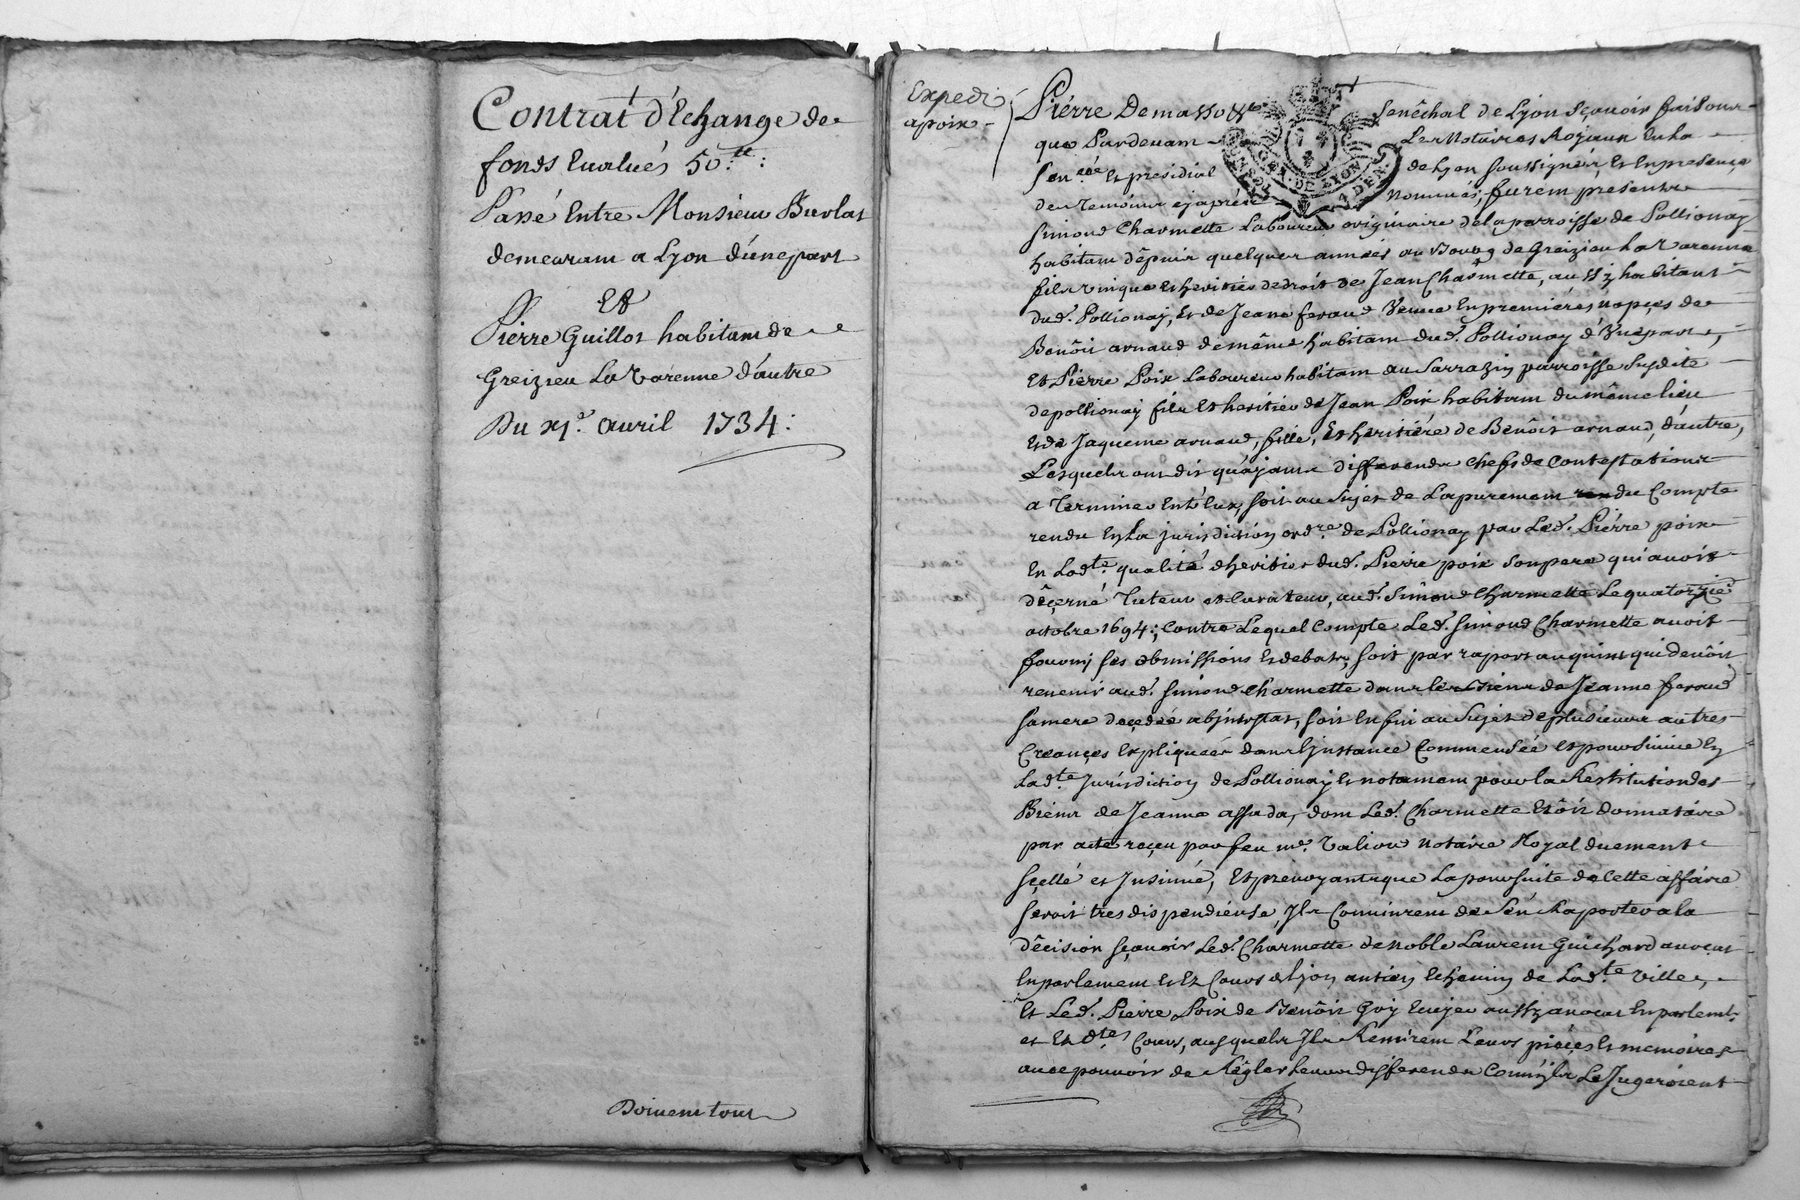 Contrat d'Echange de
fonds Evalués 50.ll:
Passé Entre Monsieur Burlat
demeurant a Lyon d'une part
Et
Pierre Guillot habitant de
Greizieu La Varenne d'autre
Du avril 1734:
Doivent tout
Expedié
a poix
Pierre Demasso Senêchal de Lyon Sçavoir faisons
que Pardevant Les Notaires Royaux En la
Sen.cée Et presidial de Lyon soussignés, Et En presence
des Temoins cy aprés nommés, furent presents
Simond Charmette Laboureur originaire de la parroisse de Pollionay
habitant dêpuis quelques années au Bourg de Greizieu La Varenne
fils Unique Et heritiér de droit de Jean Charmette, aussy habitant
dud. Pollionay, Et de Jeane feraud Veuve En premiéres nopçes de
Benôit arnaud de même habitant dud. Pollionay d'Une part,
Et Pierre Poix Laboureur habitant au Sarrazin parroisse Susdite
de pollionay fils Et heritier de Jean Poix habitant du même lieu
Et de Jaqueme arnaud, fille, Et heritiére de Benôit arnaud, d'autre,
Lesquels ont dit qu'ayant differends chefs de Contestations
a Terminer Entr'Eux, soit au Sujet de L'apurement du Compte
rendu En La jurisdiction ord.re de Pollionay par Led. Pierre poix
En Lad.te qualité d'heritier dud. Pierre poix son pere qui avoit
dêçerné Tuteur et Curateur, aud. Simond Charmette Le quatorzie
octobre 1694:, Contre Lequel Compte Led. Simond Charmette avoit
fourny ses obmissions Et debats, soit par raport au quint qui devôit
revenir aud. Simond Charmette dans les biens de Jeanne feraud
sa mere deçedée abjntestat, soit Enfin au Sujet de plusieurs autres
Creançes Expliquées dans L'jnstance Commensée Et poursuivie En
Lad.te Jurisdiction de Pollionay Et notament pour la Restitution des
Biens de Jeanne assada, dont Led. Charmette Etôit donnataire
par acte reçeu par feu m.e Valiou notaire Royal duement
sçellé et Jnsinué, Et prevoyant que La poursuite de Cette affaire
seroit tres dispendieuse, Jls Convinrent de s'en raporter a la
dêcision sçavoir Led. Charmette de noble Laurent Guichard avocat
En parlement Et Ez Cours de Lyon antien Echevin de Lad.te Ville,
Et Led. Pierre Poix de Benôit Goy Ecuyer aussy avocat En parlemt.
et Ez d.tes Cours, ausquels Jls Remirent Leurs pieçes Et memoires
avec pouvoir de Rêgler Leurs differends Comm'jls Le Jugeroient